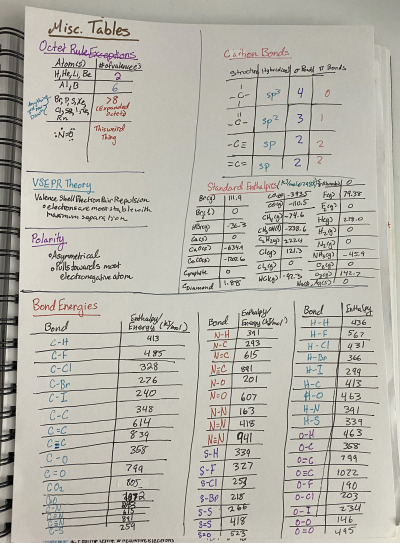 Misc. Tables
Octet Rule Exceptions
Atom(s) # of valence e-s
H, He, Li, Be 2
Al, B 6
Br, P, S, Xe, >8
Cl, (Expanded
Rn Octet)
:N=O: This weird
thing
Carbon Bonds
Structure Hybridized σ Bonds π Bonds
-C- sp³ 4 0
=C- sp² 3 1
-C≡ sp 2 2
=C= sp 2 2
VSEPR Theory
Valence Shell Electron Pair Repulsion
electrons are most stable with
maximum separation
Polarity
Asymmetrical
Pulls towards most
electronegative atom
Standard Enthalpies
Br(g) 111.9
Br₂(l) 0
HBr(g) -36.3
Ca(s) 0
CaO(s) -634.9
Cgraphite 0
Cdiamond 1.88
CO(g) -110.5
CH₄(g) -74.6
CH₃OH(l) -238.6
Cl(g) 121.3
Cl₂(g) 0
HCl(g) -92.3
F(g) 79.38
F₂(g) 0
H(g) 218.0
H₂(g) 0
N₂(g) 0
NH₃(g) -45.9
O₂(g) 0
O₃(g) 142.7
Bond Energies
Bond Enthalpy/Energy (kJ/mol)
C-H 413
C-F 485
C-Cl 328
C-Br 276
C-I 240
C-C 348
C=C 614
C≡C 839
C-O 358
C=O 799
CO₂ 805
C≡O 1072
C-N
C=N 615
C≡N 891
C-S 259
Bond Enthalpy/Energy (kJ/mol)
N-H 391
N-C 293
N=C 615
N≡C 891
N-O 201
N=O 607
N-N 163
N=N 418
N≡N 941
S-H 339
S-F 327
S-Cl 253
S-Br 218
S-S 266
S=S 418
S=O 523
Bond Enthalpy
H-H 436
H-F 567
H-Cl 431
H-Br 366
H-I 299
H-C 413
H-O 463
H-N 391
H-S 339
O-H 463
O-C 358
O=C 799
O≡C 1072
O-F 190
O-Cl 203
O-I 234
O-O 146
O=O 495